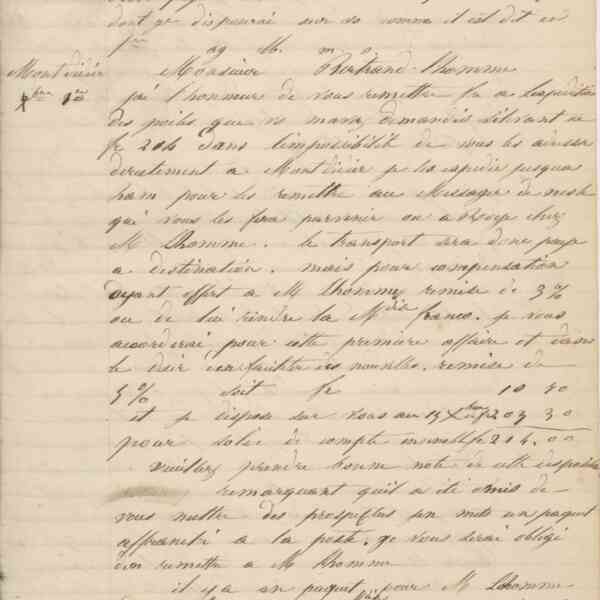 dont je disposerai sur vo comme il est dit en
Montdidier Monsieur Bertrand Lhomme
9bre 1er j'ai l'honneur de vous remettre fre a l'expedition
des poiles que vs mavez demandés s'élevant a
fr 214 Dans l'impossibilité de vous les adresser
directement a Montdidier je les expedie jusqua
ham pour les remettre au Messager de nesle
qui vous les fera parvenir ou a Roye chez
M Lhomme. le transport sera donc payé
a destination. mais pour compensation
ayant offert a M Lhomme remise de 3 %
ou de lui rendre la Mdise franco. je vous
accorderai pour cette premiere affaire et dans
le désir d'en faciliter des nouvelles. remise de
5 % soit fr 10 70
et je dispose sur vous au 15 Xbre fr 203 30
pour solde de compte ensemble fr 214.00
veuillez prendre bonne note de cette disposition
remarquant qu'il a été omis de
vous mettre des prospectus jen mets un paquet
affranchi a la poste. je vous serai obligé
d'en remettre a M Lhomme
il y a un paquet pour M Lhomme